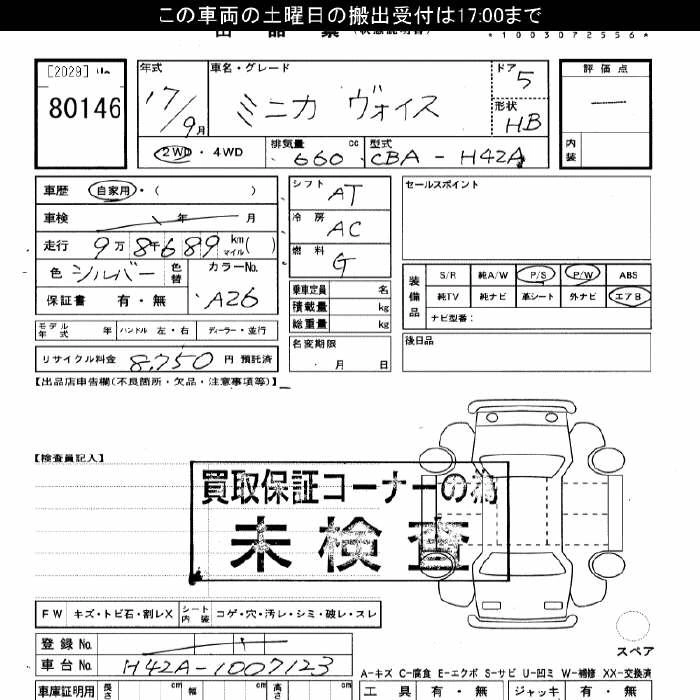 この車両の土曜日の搬出受付は17:00まで
*1003072556*
[2029]
80146
年式 車名・グレード ドア 評価点
17/9月 ミニカ ヴォイス 5
形状 HB
内装
2WD・4WD 排気量 660 cc 型式 CBA-H42A
車歴 自家用・( )
車検 年 月
走行 9万8千689 km マイル( )
色 シルバー 色替 カラーNo. A26
保証書 有・無
シフト AT
冷房 AC
燃料 G
乗車定員 名
積載量 kg
総重量 kg
名変期限 ・月 日
セールスポイント
装備品 S/R 純A/W P/S P/W ABS
純TV 純ナビ 革シート 外ナビ エアB
ナビ型番:
後日品
モデル年式 年 ハンドル 左・右 ディーラー・並行
リサイクル料金 8,750 円 預託済
【出品店申告欄(不良箇所・欠品・注意事項等)】
【検査員記入】
買取保証コーナーの為
未検査
FW キズ・トビ石・割レX シート内装 コゲ・穴・汚レ・シミ・破レ・スレ
登録No.
車台No. H42A-1007123
スペア
A−キズ C−腐食 E−エクボ S−サビ U−凹ミ W−補修 XX−交換済
車庫証明用 長さ cm 幅 cm 高さ cm 工具 有・無 ジャッキ 有・無